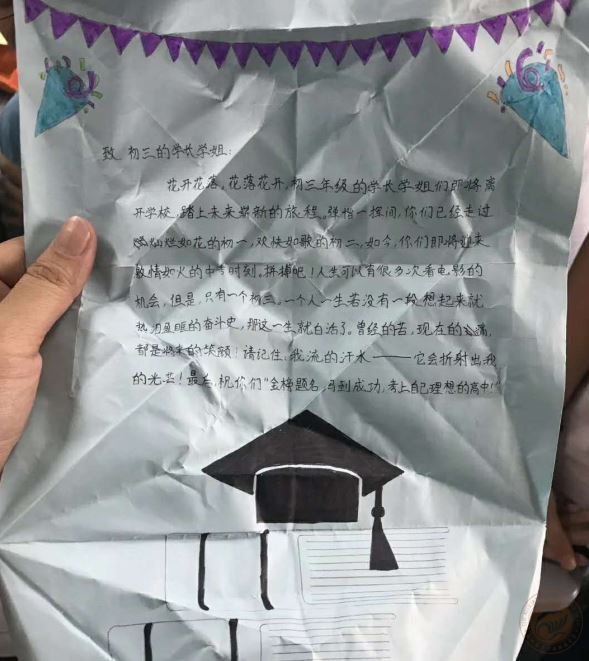 致 初三的学长学姐:
花开花落,花落花开,初三年级的学长学姐们即将离
开学校,踏上未来崭新的旅程。弹指一挥间,你们已经走过
灿烂如花的初一,欢快如歌的初二,如今,你们即将迎来
激情如火的中考时刻。拼搏吧!人生可以有很多次看电影的
机会,但是,只有一个初三。一个人一生若没有一段想起来就
热泪盈眶的奋斗史,那这一生就白活了。曾经的苦,现在的痛,
都是将来的笑颜!请记住,我流的汗水——它会折射出我
的光芒!最后,祝你们“金榜题名,马到成功,考上自己理想的高中!”